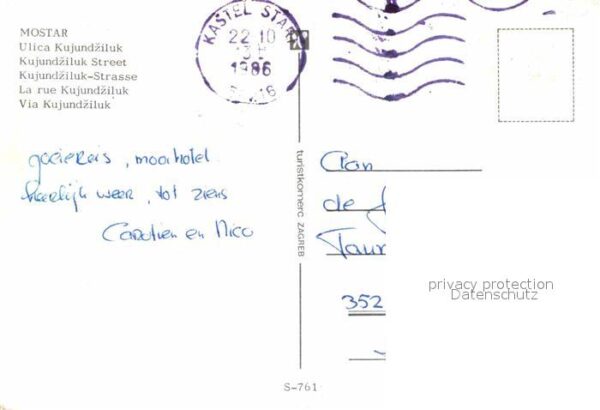 MOSTAR
Ulica Kujundžiluk
Kujundžiluk Street
Kujundžiluk-Strasse
La rue Kujundžiluk
Via Kujundžiluk
KAŠTEL STARI
22 10
1986
goeie reis, mooi hotel
heerlijk weer, tot ziens
Carolien en Nico
turistkomerc ZAGREB
Aan
de
Taur
352
privacy protection
Datenschutz
S-761